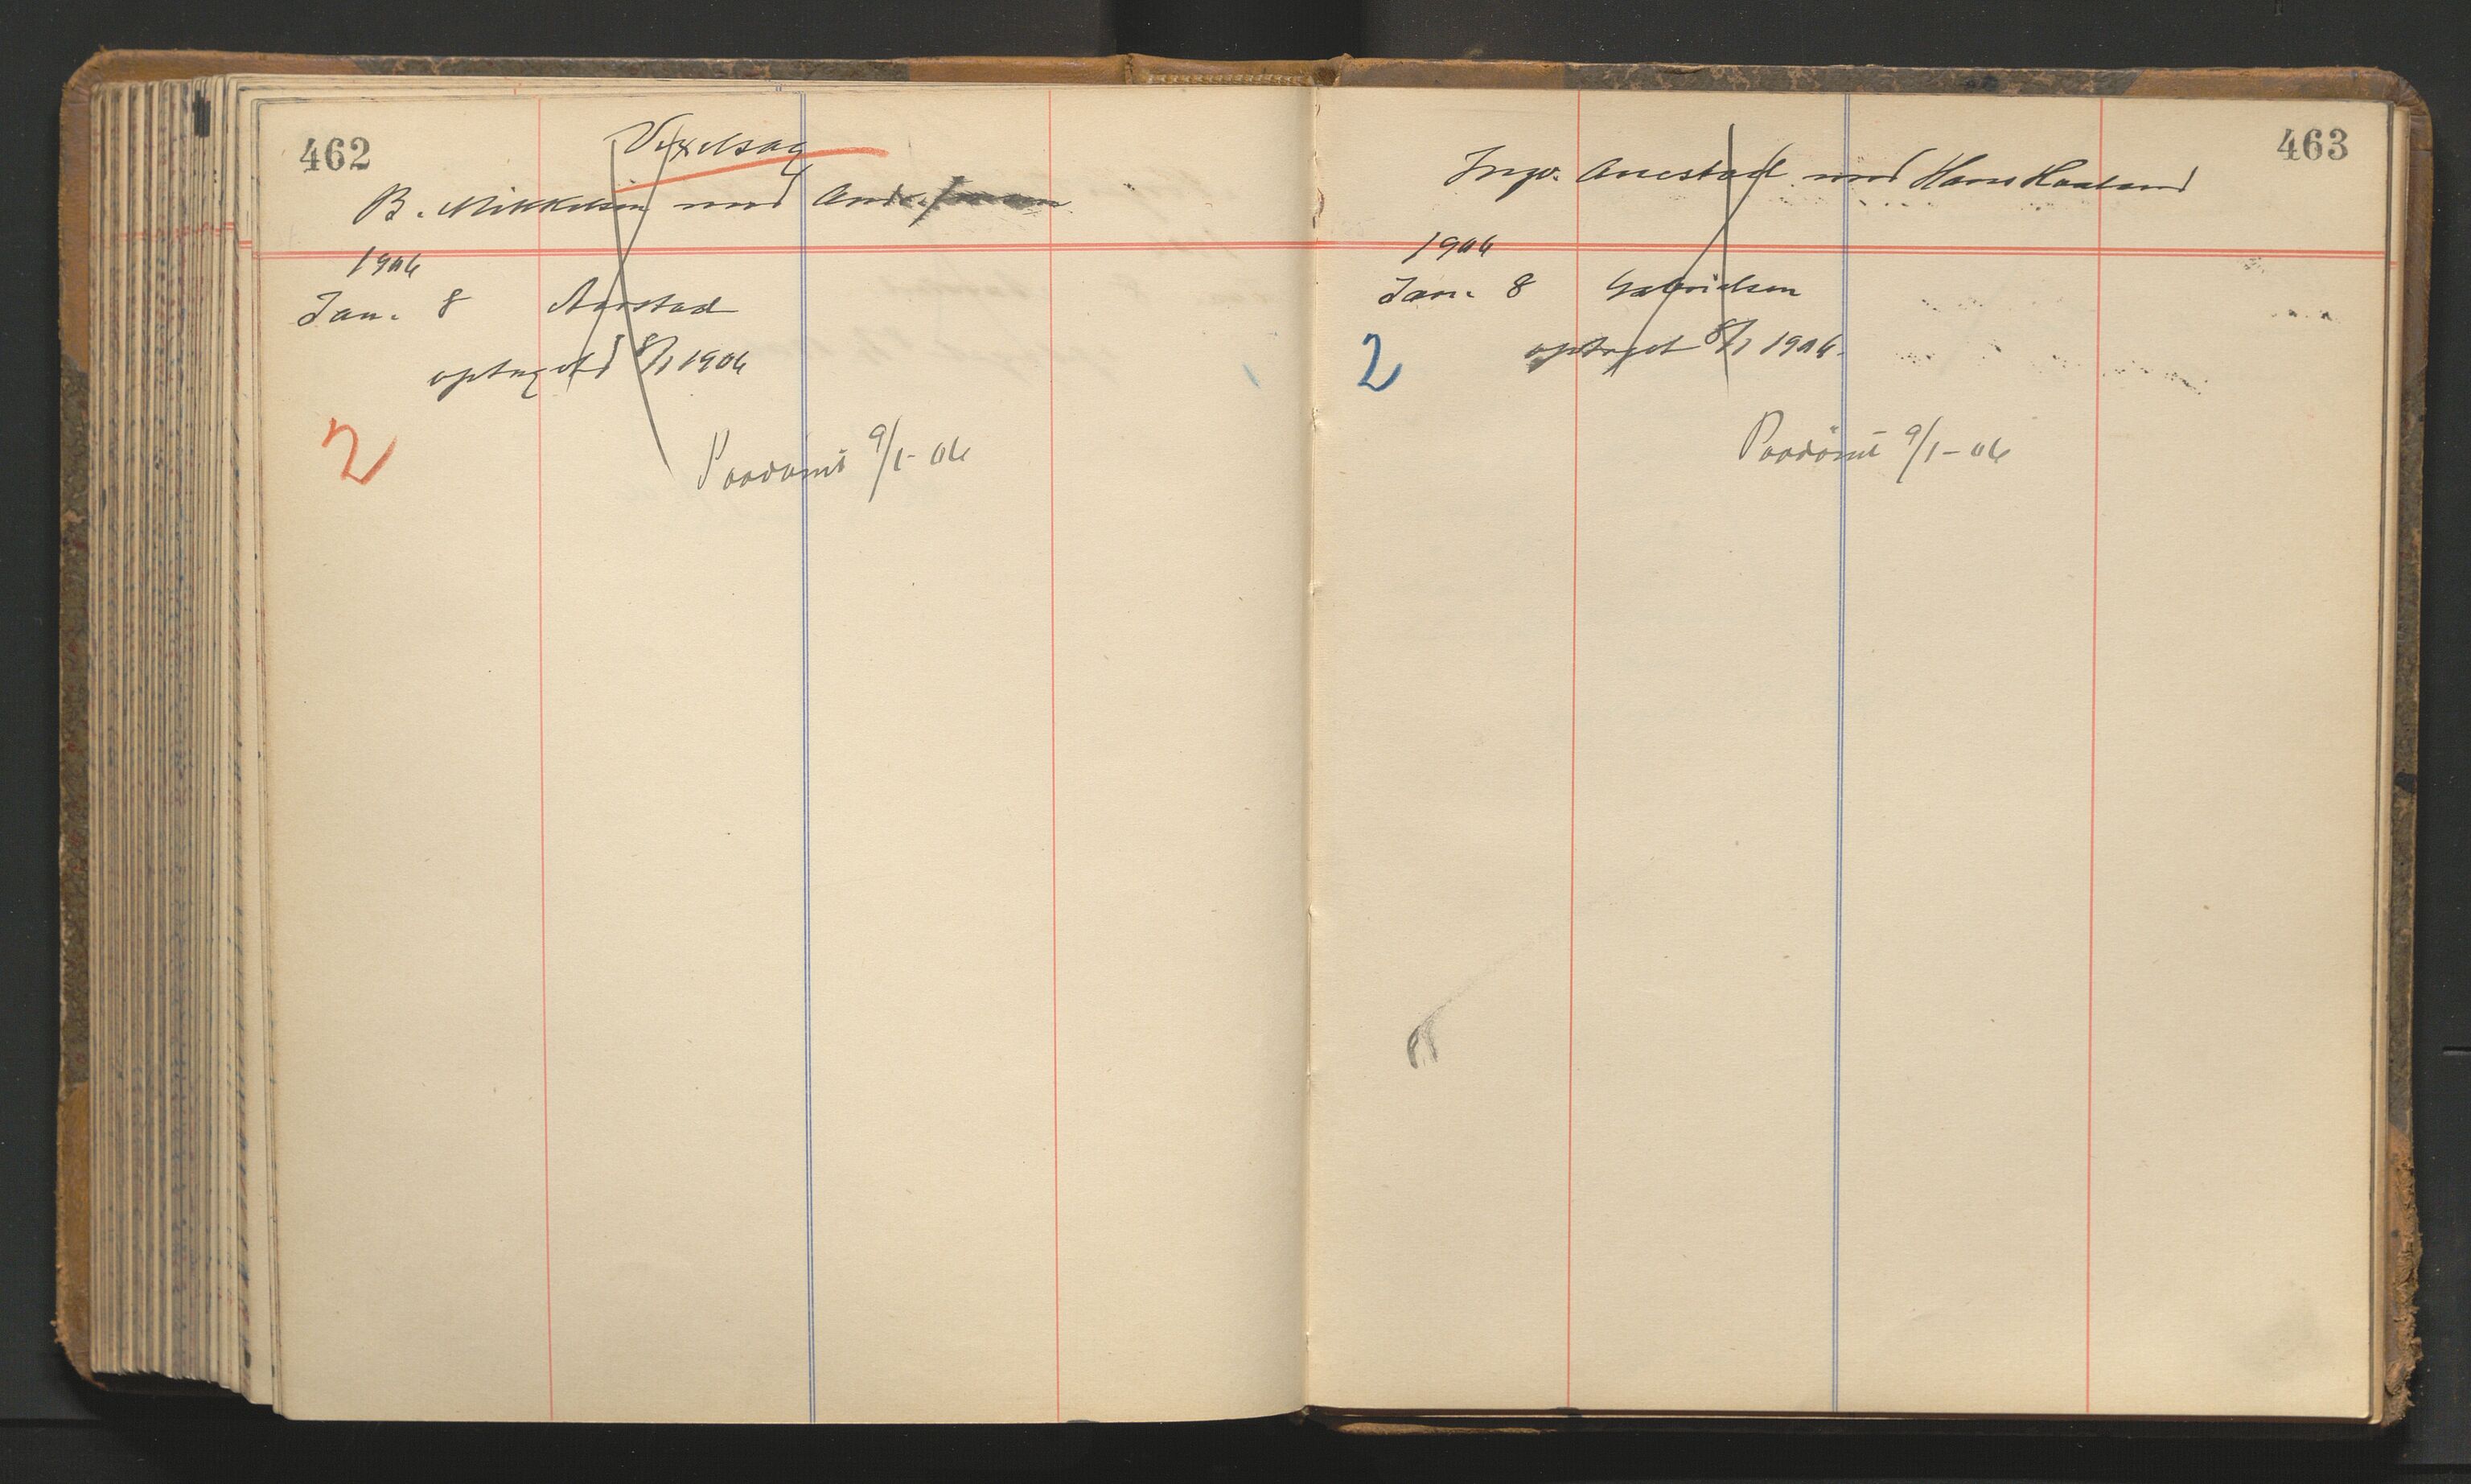 462
Vexelsag
B. Mikkelsen mod
1906
Jan. 8 Aarstad
optaget 8/1 1906
2
Paadömt 9/1-06
463
Ingv. Anestad mod Hans Haaland
1906
Jan. 8 Gabrielsen
optaget 8/1 1906.
2
Paadömt 9/1-06